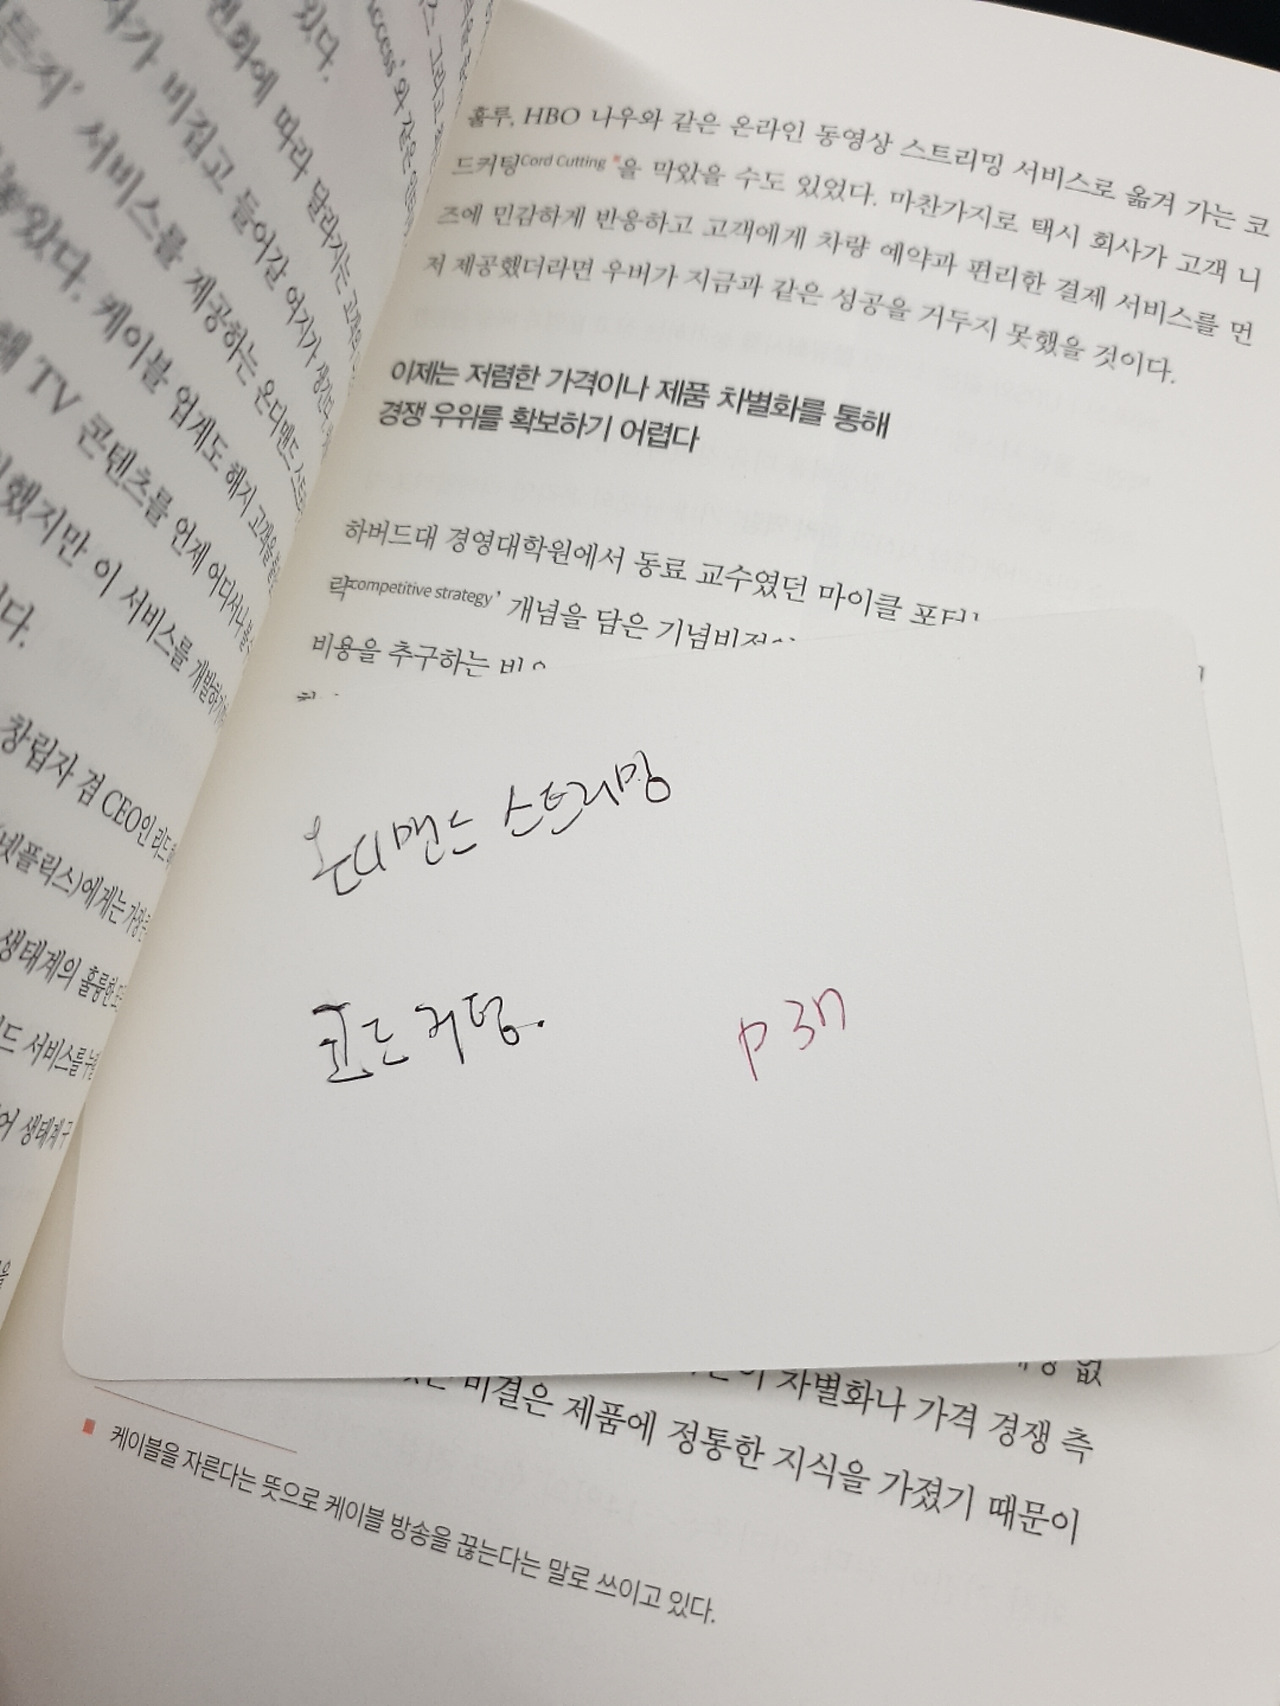 있다.
변화에 따라 달라지는 고객의
가 비집고 들어갈 여지가 생긴다.
서비스를 제공하는 온디맨드
있다. 케이블 업계도 해지 고객을
해 TV 콘텐츠를 언제 어디서나
했지만 이 서비스를 개발하기
다.
창립자 겸 CEO인 리드
넷플릭스)에게는 가장
생태계의 훌륭한
드 서비스를 누릴
어 생태계 구
을
훌루, HBO 나우와 같은 온라인 동영상 스트리밍 서비스로 옮겨 가는 코
드커팅Cord Cutting을 막았을 수도 있었다. 마찬가지로 택시 회사가 고객 니
즈에 민감하게 반응하고 고객에게 차량 예약과 편리한 결제 서비스를 먼
저 제공했더라면 우버가 지금과 같은 성공을 거두지 못했을 것이다.
이제는 저렴한 가격이나 제품 차별화를 통해
경쟁 우위를 확보하기 어렵다
하버드대 경영대학원에서 동료 교수였던 마이클 포터
략competitive strategy’ 개념을 담은 기념비적
비용을 추구하는 비용
온디맨드 스트리밍
코드 커팅.
없
차별화나 가격 경쟁 측
비결은 제품에 정통한 지식을 가졌기 때문이
■ 케이블을 자른다는 뜻으로 케이블 방송을 끊는다는 말로 쓰이고 있다.